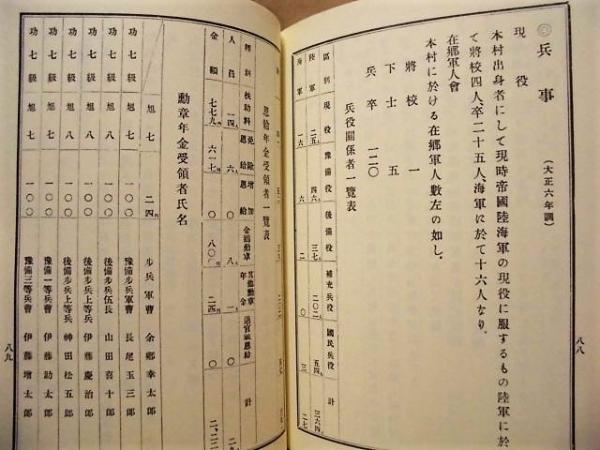 ◎兵事 (大正六年調)
現役
本村出身者にして現時帝國陸海軍の現役に服するもの陸軍に於
て將校四人、卒二十五人、海軍に於て十六人なり。
在鄕軍人會
本村に於ける在鄕軍人數左の如し。
將校 一
下士 五
兵卒 一二〇
兵役關係者一覽表
區別 現役 豫備役 後備役 補充兵役 國民兵役 計
陸軍 二五人 四六 三七 二〇二 五四 三六四
海軍 一六 六 二 〇 三 二七
八八
恩給年金受領者一覽表
種別 扶助料 增加恩給 計
人員 一四人 六 〇 八 一 〇
金額 七七九円 六一七円 〇 八〇〇円 二四円 〇
勳章年金受領者氏名
旭七 二四円 步兵軍曹 余鄕幸太郎
功七級 旭七 一〇〇 豫備步兵軍曹 長尾玉三郎
功七級 旭八 一〇〇 後備步兵伍長 山田喜十郎
功七級 旭八 一〇〇 後備步兵上等兵 伊藤慶治郎
功七級 旭八 一〇〇 後備步兵上等兵 神田松五郎
功七級 旭七 一〇〇 豫備一等兵 伊藤助太郎
功七級 旭七 一〇〇 豫備三等兵 伊藤增太郎
八九